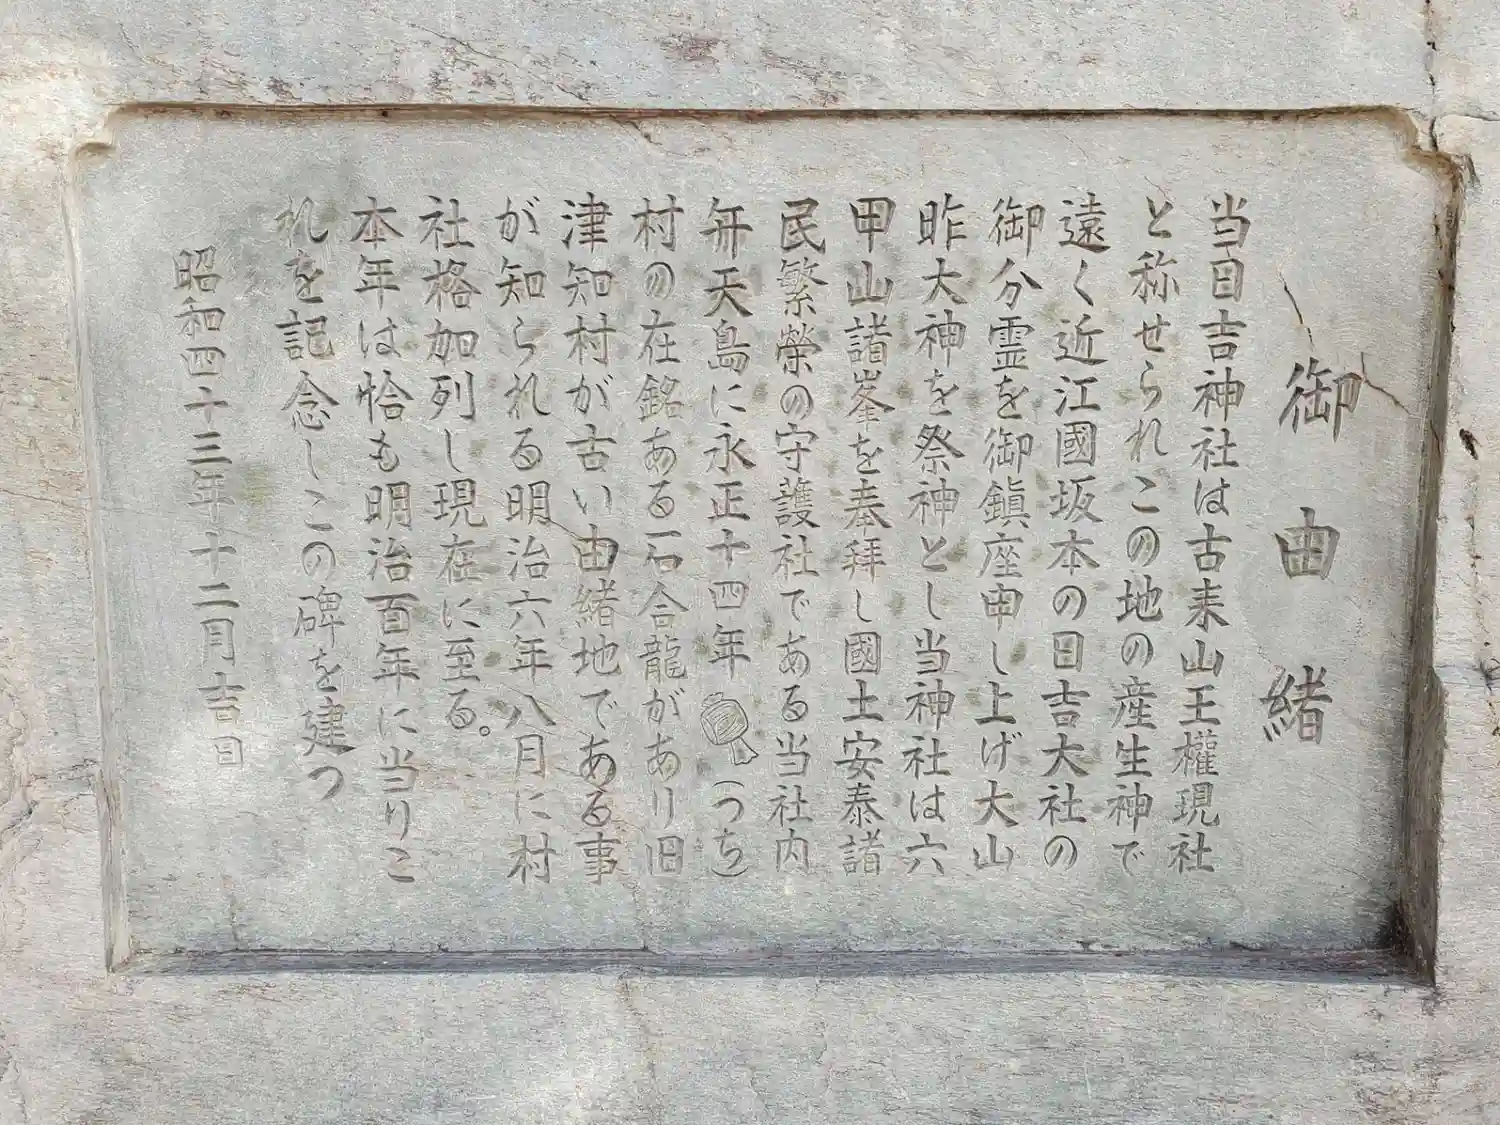 御由緒
当日吉神社は古来山王權現社
と称せられこの地の産生神で
遠く近江國坂本の日吉大社の
御分霊を御鎮座申し上げ大山
昨大神を祭神とし当神社は六
甲山諸峯を奉拜し國土安泰諸
民繁榮の守護社である当社内
弁天島に永正十四年(つち)
村の在銘ある石合龍があり旧
津知村が古い由緒地である事
が知られる明治六年八月に村
社格加列し現在に至る。
本年は恰も明治百年に当りこ
れを記念しこの碑を建つ
昭和四十三年十二月吉日